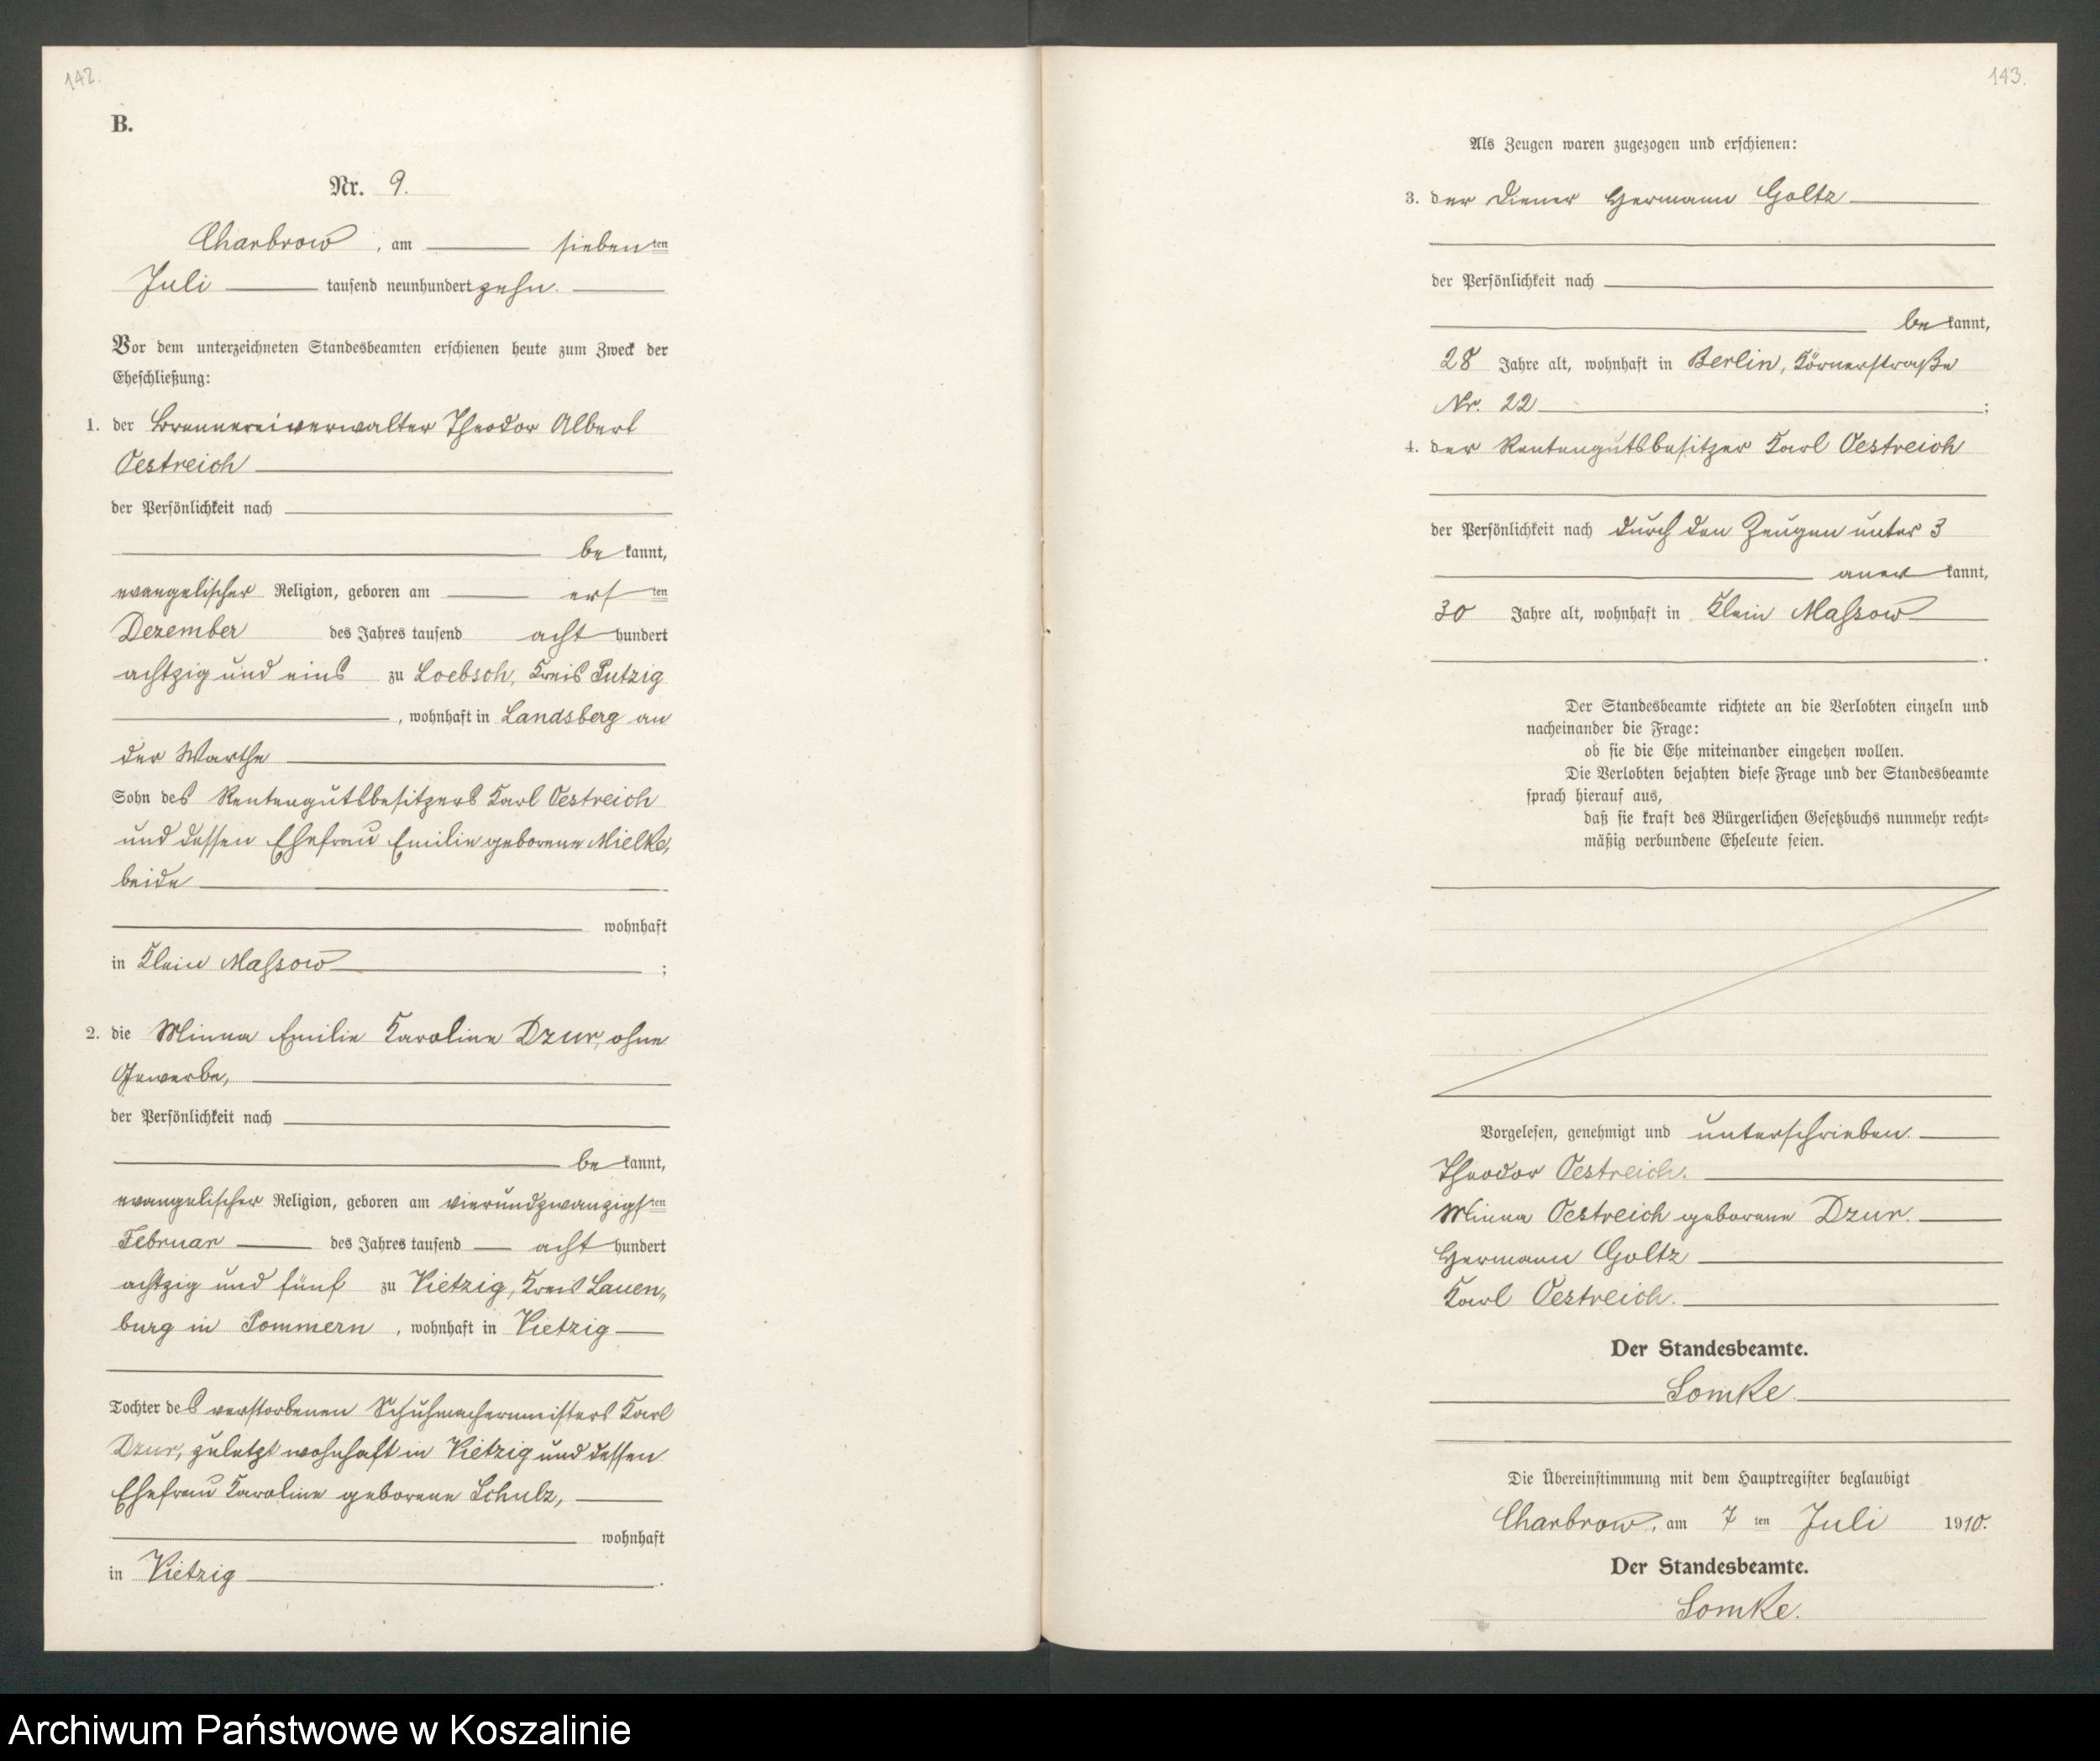 142.
B.
Nr. 9.
Charbrow, am siebenten
Juli tausend neunhundert zehn.
Vor dem unterzeichneten Standesbeamten erschienen heute zum Zweck der
Eheschließung:
1. der Brennereiverwalter Theodor Albert
Oestreich
der Persönlichkeit nach
be kannt,
evangelischer Religion, geboren am ersten
Dezember des Jahres tausend acht hundert
achtzig und eins zu Loebsch, Kreis Putzig
, wohnhaft in Landsberg an
der Warthe
Sohn des Rentengutsbesitzers Karl Oestreich
und dessen Ehefrau Emilie geborene Mielke,
beide
wohnhaft
in Klein Massow ;
2. die Minna Emilie Karoline Dzur, ohne
Gewerbe,
der Persönlichkeit nach
be kannt,
evangelischer Religion, geboren am vierundzwanzigsten
Februar des Jahres tausend acht hundert
achtzig und fünf zu Vietzig, Kreis Lauen„
burg in Pommern, wohnhaft in Vietzig
Tochter des verstorbenen Schuhmachermeisters Karl
Dzur, zuletzt wohnhaft in Vietzig und dessen
Ehefrau Karoline geborene Schulz,
wohnhaft
in Vietzig .
143.
Als Zeugen waren zugezogen und erschienen:
3. der Diener Hermann Goltz
der Persönlichkeit nach
be kannt,
28 Jahre alt, wohnhaft in Berlin, Körnerstraße
Nr. 22 ;
4. der Rentengutsbesitzer Karl Oestreich
der Persönlichkeit nach durch den Zeugen unter 3
aner kannt,
30 Jahre alt, wohnhaft in Klein Massow
.
Der Standesbeamte richtete an die Verlobten einzeln und
nacheinander die Frage:
ob sie die Ehe miteinander eingehen wollen.
Die Verlobten bejahten diese Frage und der Standesbeamte
sprach hierauf aus,
daß sie kraft des Bürgerlichen Gesetzbuchs nunmehr recht=
mäßig verbundene Eheleute seien.
Vorgelesen, genehmigt und unterschrieben.
Theodor Oestreich.
Minna Oestreich geborene Dzur.
Hermann Goltz
Karl Oestreich.
Der Standesbeamte.
Lomke.
Die Übereinstimmung mit dem Hauptregister beglaubigt
Charbrow, am 7 ten Juli 1910.
Der Standesbeamte.
Lomke.
Archiwum Państwowe w Koszalinie